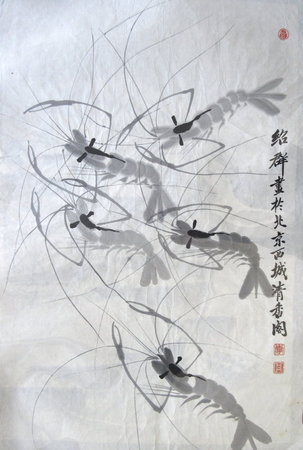 绍群画於北京西城清香阁